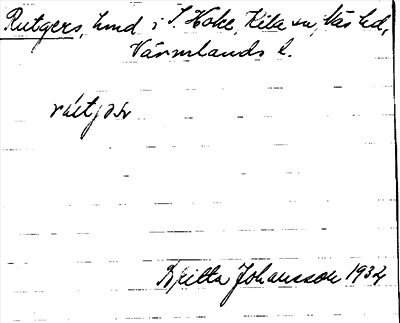 Rutgers, hmd. i S. Hokee, Kila sn, Näs hd,
Värmlands l.
Britta Johansson 1932